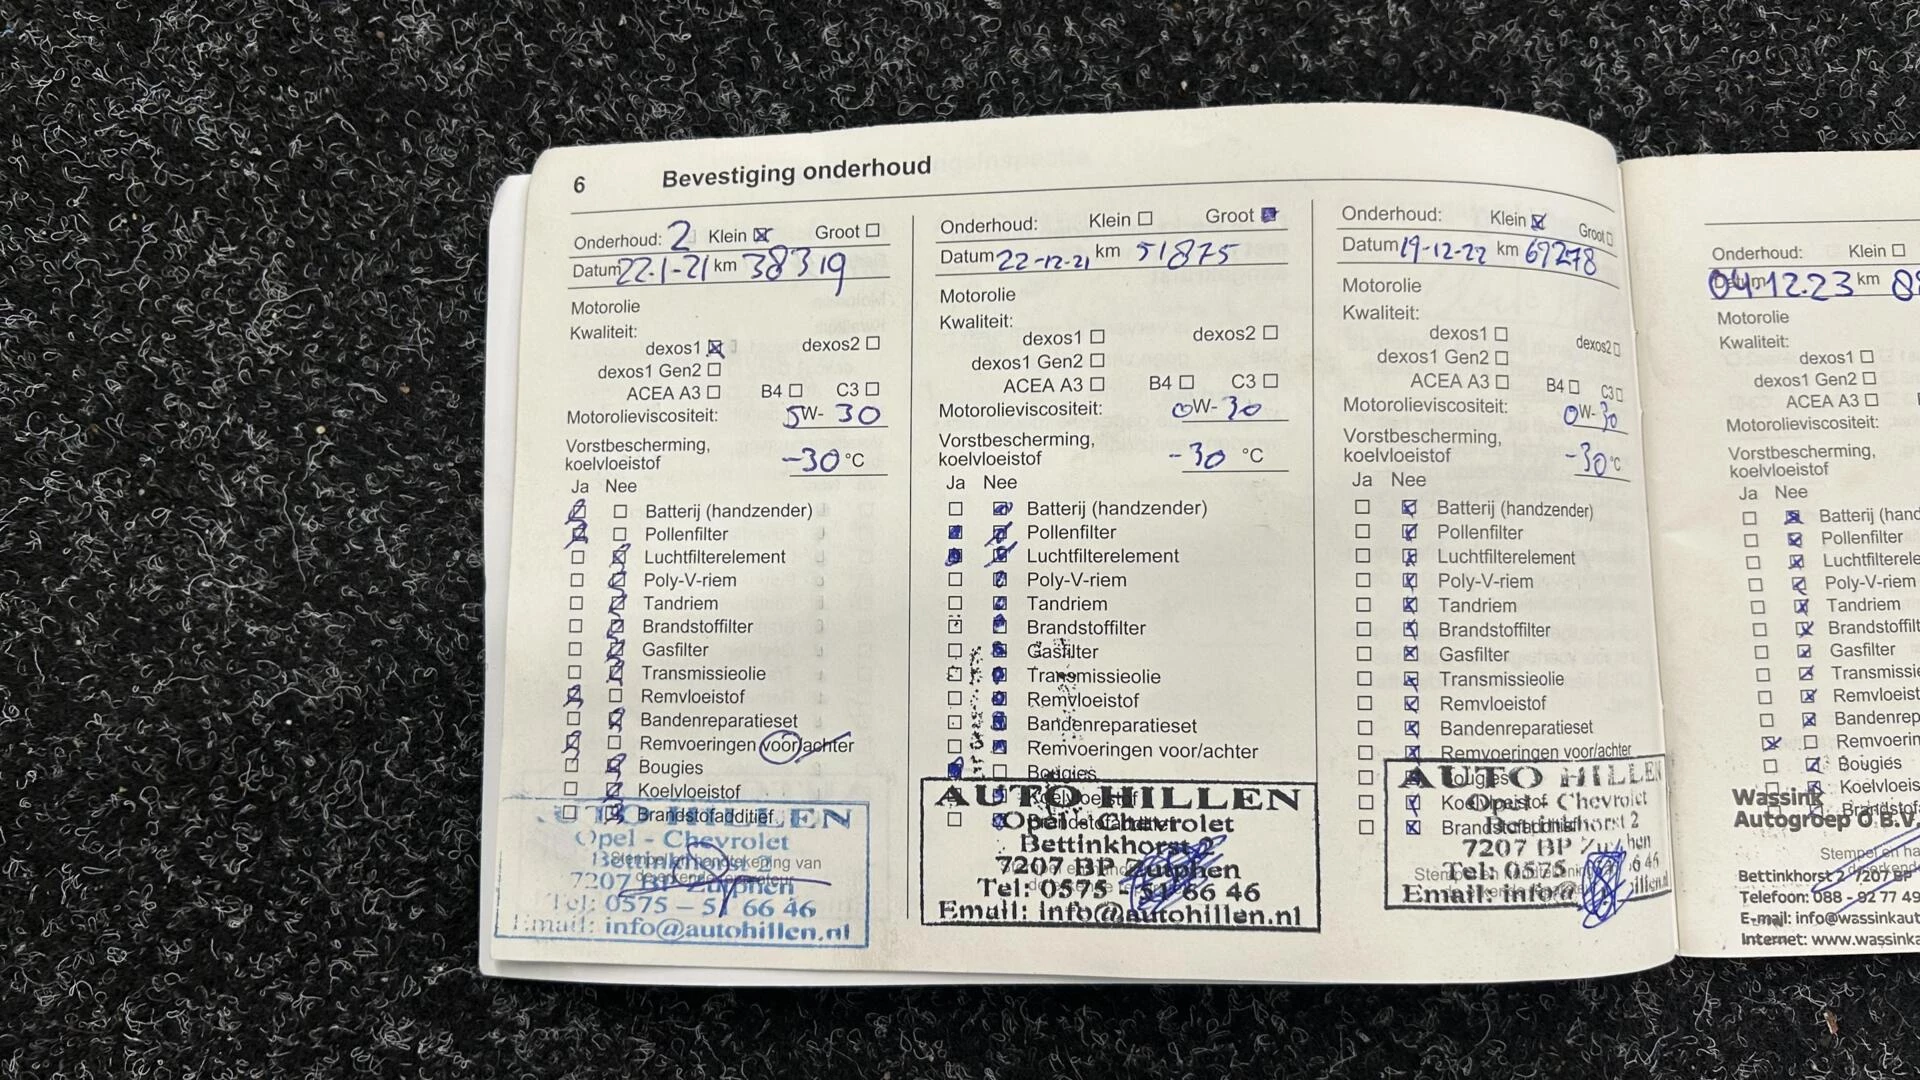 6 Bevestiging onderhoud
Onderhoud: 2 Klein Groot
Datum 22-1-21 km 38319
Motorolie
Kwaliteit:
dexos1 dexos2
dexos1 Gen2
ACEA A3 B4 C3
Motorolieviscositeit: 5W-30
Vorstbescherming,
koelvloeistof -30 °C
Ja Nee
Batterij (handzender)
Pollenfilter
Luchtfilterelement
Poly-V-riem
Tandriem
Brandstoffilter
Gasfilter
Transmissieolie
Remvloeistof
Bandenreparatieset
Remvoeringen voor/achter
Bougies
Koelvloeistof
Brandstofadditief
AUTO HILLEN
Opel - Chevrolet
Bettinkhorst 2
7207 BP Zutphen
Tel: 0575 - 51 66 46
Email: info@autohillen.nl
Stempel en handtekening van
de erkende reparateur
Onderhoud: Klein Groot
Datum 22-12-21 km 51875
Motorolie
Kwaliteit:
dexos1 dexos2
dexos1 Gen2
ACEA A3 B4 C3
Motorolieviscositeit: 0W-30
Vorstbescherming,
koelvloeistof -30 °C
Ja Nee
Batterij (handzender)
Pollenfilter
Luchtfilterelement
Poly-V-riem
Tandriem
Brandstoffilter
Gasfilter
Transmissieolie
Remvloeistof
Bandenreparatieset
Remvoeringen voor/achter
Bougies
Koelvloeistof
Brandstofadditief
AUTO HILLEN
Opel - Chevrolet
Bettinkhorst 2
7207 BP Zutphen
Tel: 0575 - 51 66 46
Email: info@autohillen.nl
Onderhoud: Klein Groot
Datum 19-12-22 km 69278
Motorolie
Kwaliteit:
dexos1 dexos2
dexos1 Gen2
ACEA A3 B4 C3
Motorolieviscositeit: 0W-30
Vorstbescherming,
koelvloeistof -30 °C
Ja Nee
Batterij (handzender)
Pollenfilter
Luchtfilterelement
Poly-V-riem
Tandriem
Brandstoffilter
Gasfilter
Transmissieolie
Remvloeistof
Bandenreparatieset
Remvoeringen voor/achter
Bougies
Koelvloeistof
Brandstofadditief
AUTO HILLEN
Opel - Chevrolet
Bettinkhorst 2
7207 BP Zutphen
Tel: 0575 6 46
Email: info@ illen.nl
Onderhoud: Klein
Datum 04-12-23 km 8
Motorolie
Kwaliteit:
dexos1
dexos1 Gen2
ACEA A3
Motorolieviscositeit:
Vorstbescherming,
koelvloeistof
Ja Nee
Batterij (hand
Pollenfilter
Luchtfilterele
Poly-V-riem
Tandriem
Brandstoffilt
Gasfilter
Transmissie
Remvloeist
Bandenrep
Remvoerin
Bougies
Koelvloeis
Brandstofa
Wassink
Autogroep O.B.V.
Stempel en ha
Bettinkhorst 2, 7207 BP
Telefoon: 088 - 92 77 49
E-mail: info@wassinkaut
Internet: www.wassinka